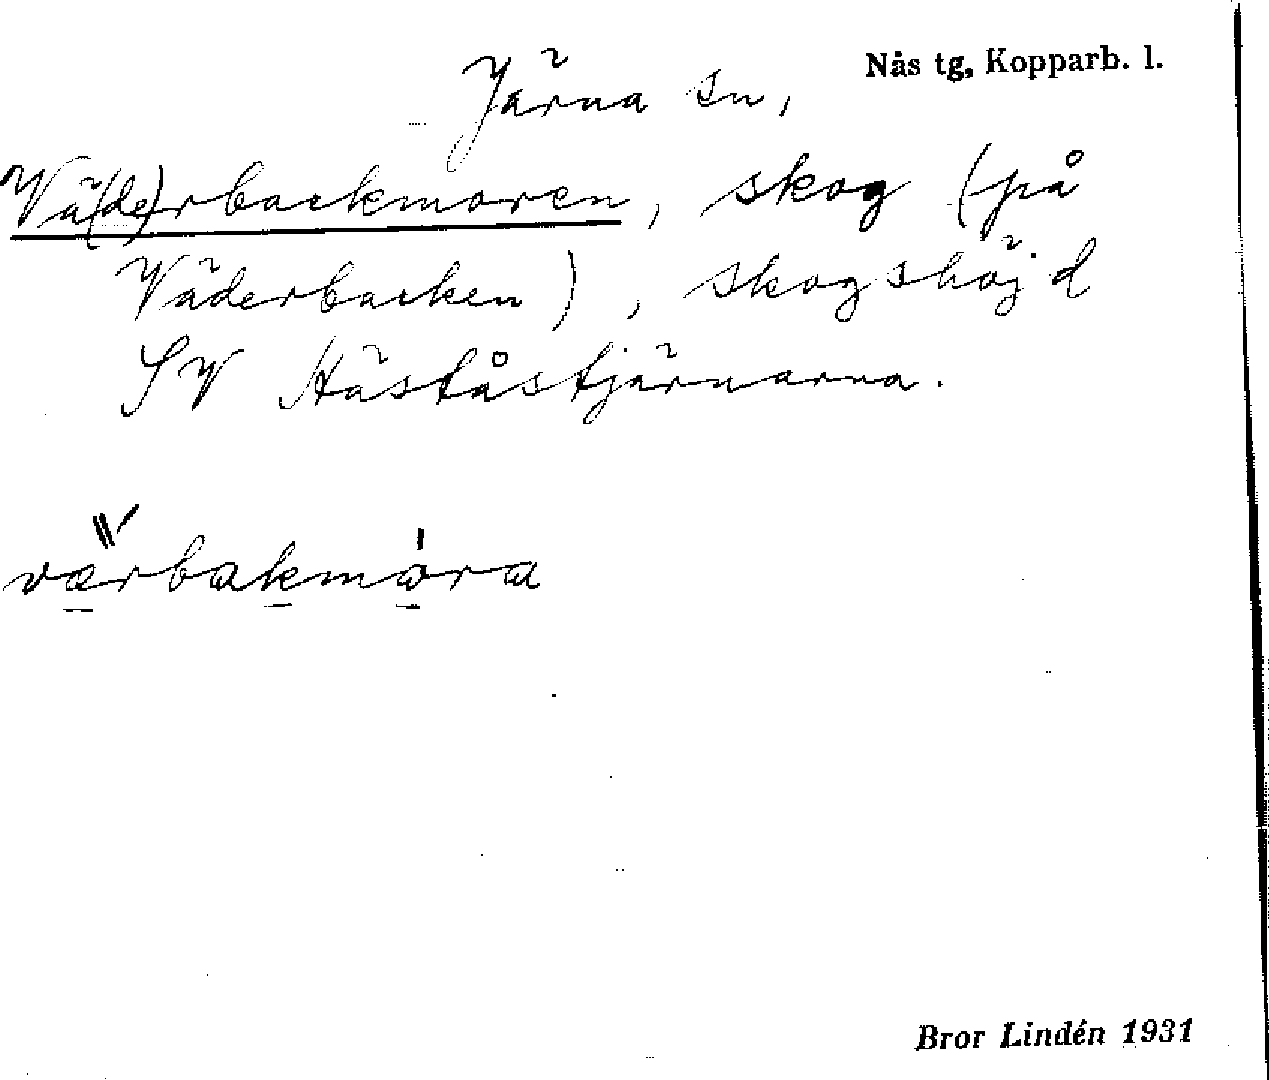 Nås tg, Kopparb. l.
Järna sn,
Vä(de)rbackmoren, skog (på
Väderbacken), skogshöjd
SV Häståstjärnarna.
värbakmóra
Bror Lindén 1931